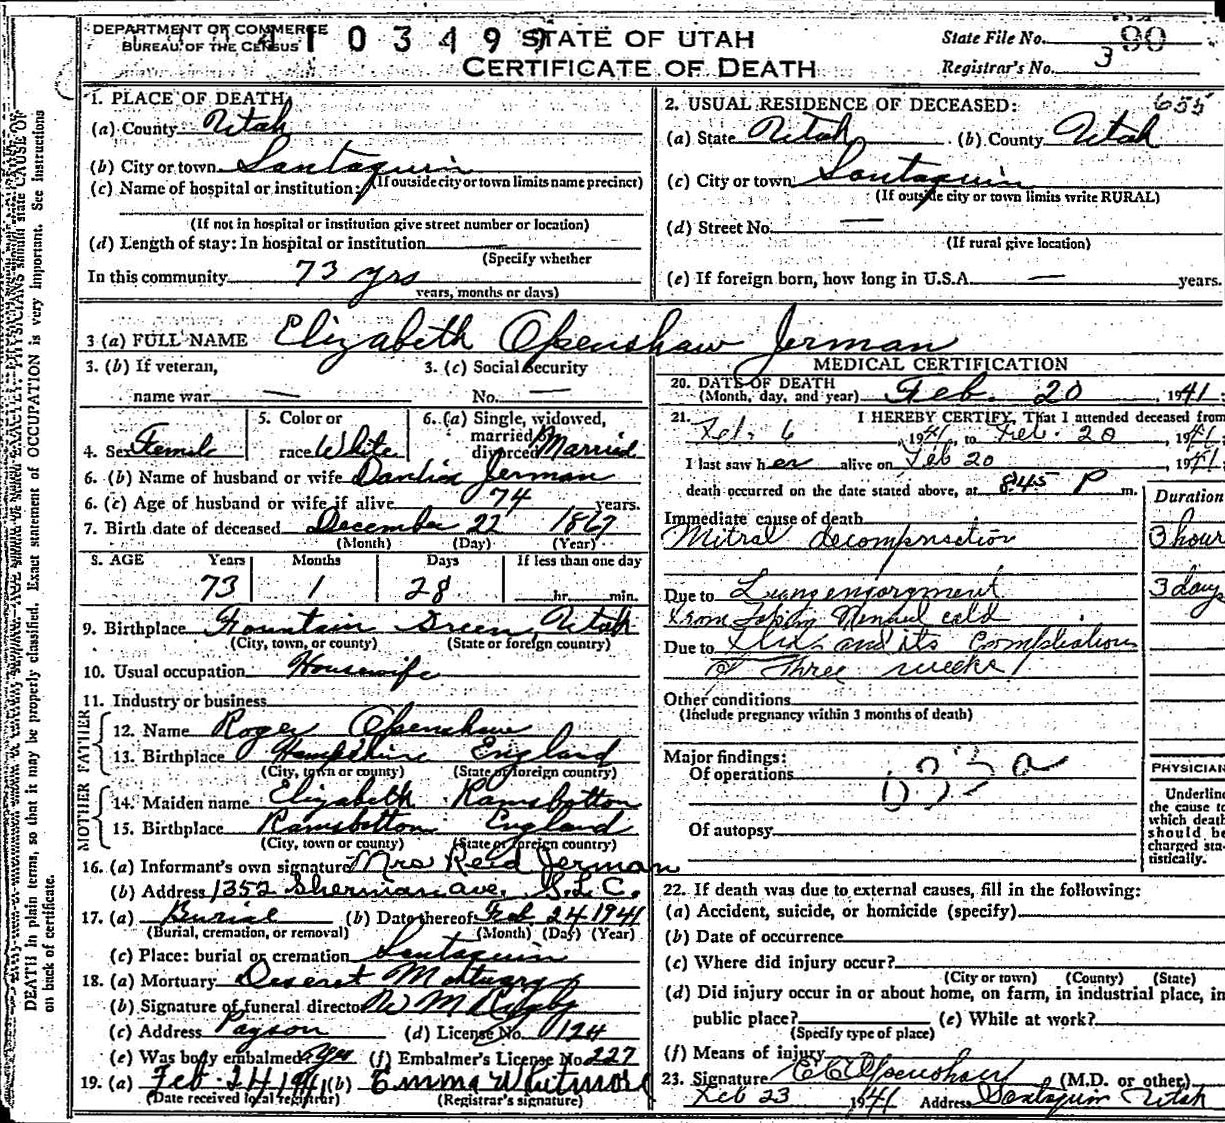 DEPARTMENT OF COMMERCE
BUREAU OF THE CENSUS
4103499
STATE OF UTAH
CERTIFICATE OF DEATH
State File No. 90
Registrar's No. 3
DEATH in plain terms, so that it may be properly classified. Exact statement of OCCUPATION is very important. See Instructions
on back of certificate.
1. PLACE OF DEATH
(a) County Utah
(b) City or town Santaquin
(If outside city or town limits name precinct)
(c) Name of hospital or institution:
(If not in hospital or institution give street number or location)
(d) Length of stay: In hospital or institution
(Specify whether
In this community 73 yrs
years, months or days)
2. USUAL RESIDENCE OF DECEASED: 655
(a) State Utah (b) County Utah
(c) City or town Santaquin
(If outside city or town limits write RURAL)
(d) Street No. —
(If rural give location)
(e) If foreign born, how long in U.S.A. — years.
3 (a) FULL NAME Elizabeth Openshaw Jerman
3. (b) If veteran,
name war —
3. (c) Social Security
No. —
4. Sex Female
5. Color or
race White
6. (a) Single, widowed,
married or
divorced Married
6. (b) Name of husband or wife Jerman
6. (c) Age of husband or wife if alive 74 years.
7. Birth date of deceased December 22 1867
(Month) (Day) (Year)
8. AGE Years Months Days If less than one day
73 1 28 hr. min.
9. Birthplace Fountain Green, Utah
(City, town, or county) (State or foreign country)
10. Usual occupation Housewife
11. Industry or business
FATHER
12. Name Roger Openshaw
13. Birthplace Hampshire England
(City, town or county) (State or foreign country)
MOTHER
14. Maiden name Elizabeth Ramsbotton
15. Birthplace Ramsbotton England
(City, town or county) (State or foreign country)
16. (a) Informant's own signature Mrs Reid Jerman
(b) Address 1352 Sherman ave. S.L.C.
17. (a) Burial (b) Date thereof Feb 24 1941
(Burial, cremation, or removal) (Month) (Day) (Year)
(c) Place: burial or cremation Santaquin
18. (a) Mortuary Deseret Mortuary
(b) Signature of funeral director W M
(c) Address Payson (d) License No. 124
(e) Was body embalmed? yes (f) Embalmer's License No. 227
19. (a) Feb. 24 1941 (b) Emma Whitmore
(Date received local registrar) (Registrar's signature)
MEDICAL CERTIFICATION
20. DATE OF DEATH
(Month, day, and year) Feb. 20, 1941;
21. I HEREBY CERTIFY, That I attended deceased from
Feb. 6, 1941, to Feb. 20, 1941.
I last saw her alive on Feb 20, 1941.
death occurred on the date stated above, at 8:45 P m.
Duration
Immediate cause of death
Mitral decompensation 3 hour
Due to Lung engorgment 3 days
from cold
Due to Flu and its Complications
of three weeks
Other conditions
(Include pregnancy within 3 months of death)
Major findings:
Of operations
033a
Of autopsy
PHYSICIAN
Underline
the cause to
which death
should be
charged sta-
tistically.
22. If death was due to external causes, fill in the following:
(a) Accident, suicide, or homicide (specify)
(b) Date of occurrence
(c) Where did injury occur?
(City or town) (County) (State)
(d) Did injury occur in or about home, on farm, in industrial place, in
public place? (e) While at work?
(Specify type of place)
(f) Means of injury
23. Signature Openshaw (M.D. or other)
Feb 23 1941 Address Santaquin Utah